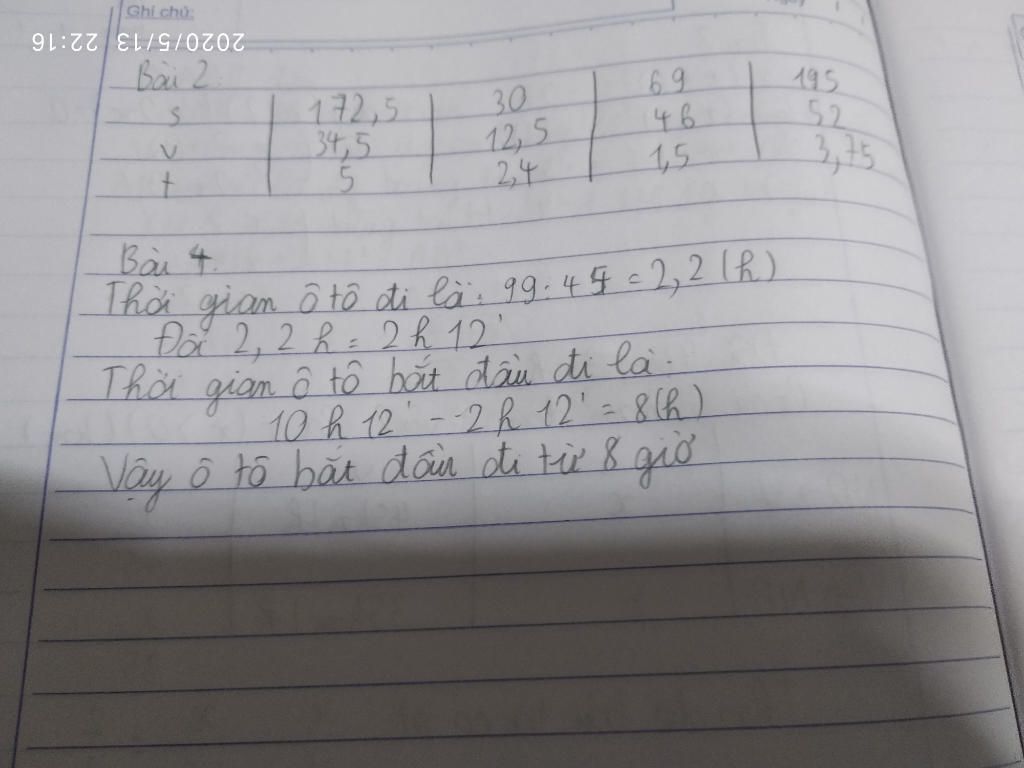 Ghi chú:
2020/5/13 22:16
Bài 2
s | 172,5 | 30 | 69 | 195
v | 34,5 | 12,5 | 46 | 52
t | 5 | 2,4 | 1,5 | 3,75
Bài 4.
Thời gian ô tô đi là: 99:45 = 2,2 (h)
Đổi 2,2 h = 2 h 12'
Thời gian ô tô bắt đầu đi là:
10 h 12' - 2 h 12' = 8 (h)
Vậy ô tô bắt đầu đi từ 8 giờ